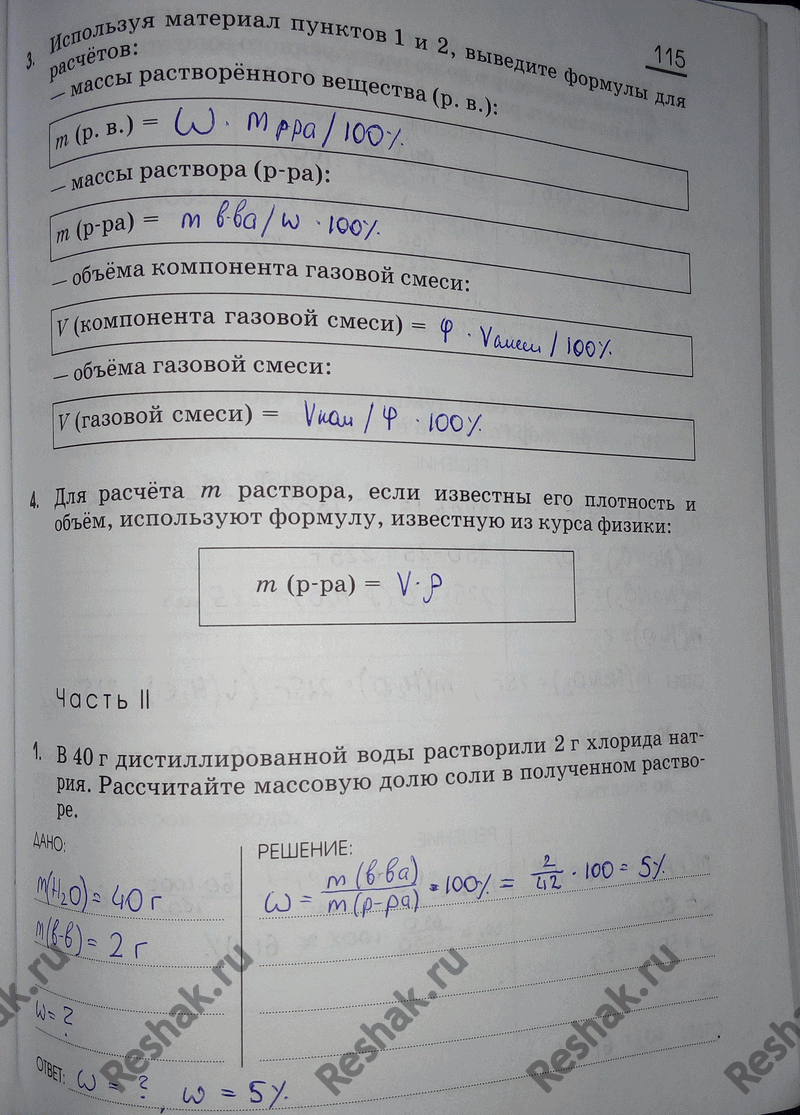 115
3. Используя материал пунктов 1 и 2, выведите формулы для
расчётов:
— массы растворённого вещества (р. в.):
m (р. в.) = ω · m рра / 100%.
— массы раствора (р-ра):
m (р-ра) = m в-ва / ω · 100%.
— объёма компонента газовой смеси:
V (компонента газовой смеси) = φ · / 100%.
— объёма газовой смеси:
V (газовой смеси) = Vком / φ · 100%.
4. Для расчёта m раствора, если известны его плотность и
объём, используют формулу, известную из курса физики:
m (р-ра) = V · ρ
Часть II
1. В 40 г дистиллированной воды растворили 2 г хлорида нат-
рия. Рассчитайте массовую долю соли в полученном раство-
ре.
ДАНО:
m(H₂O) = 40 г
m(в-в) = 2 г
ω = ?
РЕШЕНИЕ:
ω = m (в-ва) / m (р-ра) · 100% = 2/42 · 100 = 5%.
ОТВЕТ: ω = ?, ω = 5%.
Reshak.ru
Reshak.ru
Reshak.ru